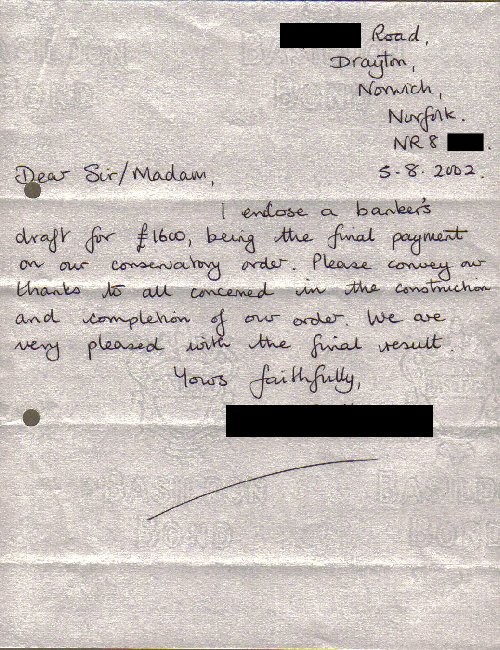 Road,
Drayton,
Norwich,
Norfolk.
NR8 .
Dear Sir/Madam,
5.8.2002.
I enclose a banker's
draft for £1600, being the final payment
on our conservatory order. Please convey our
thanks to all concerned in the construction
and completion of our order. We are
very pleased with the final result.
Yours faithfully,
BASILDON
BOND